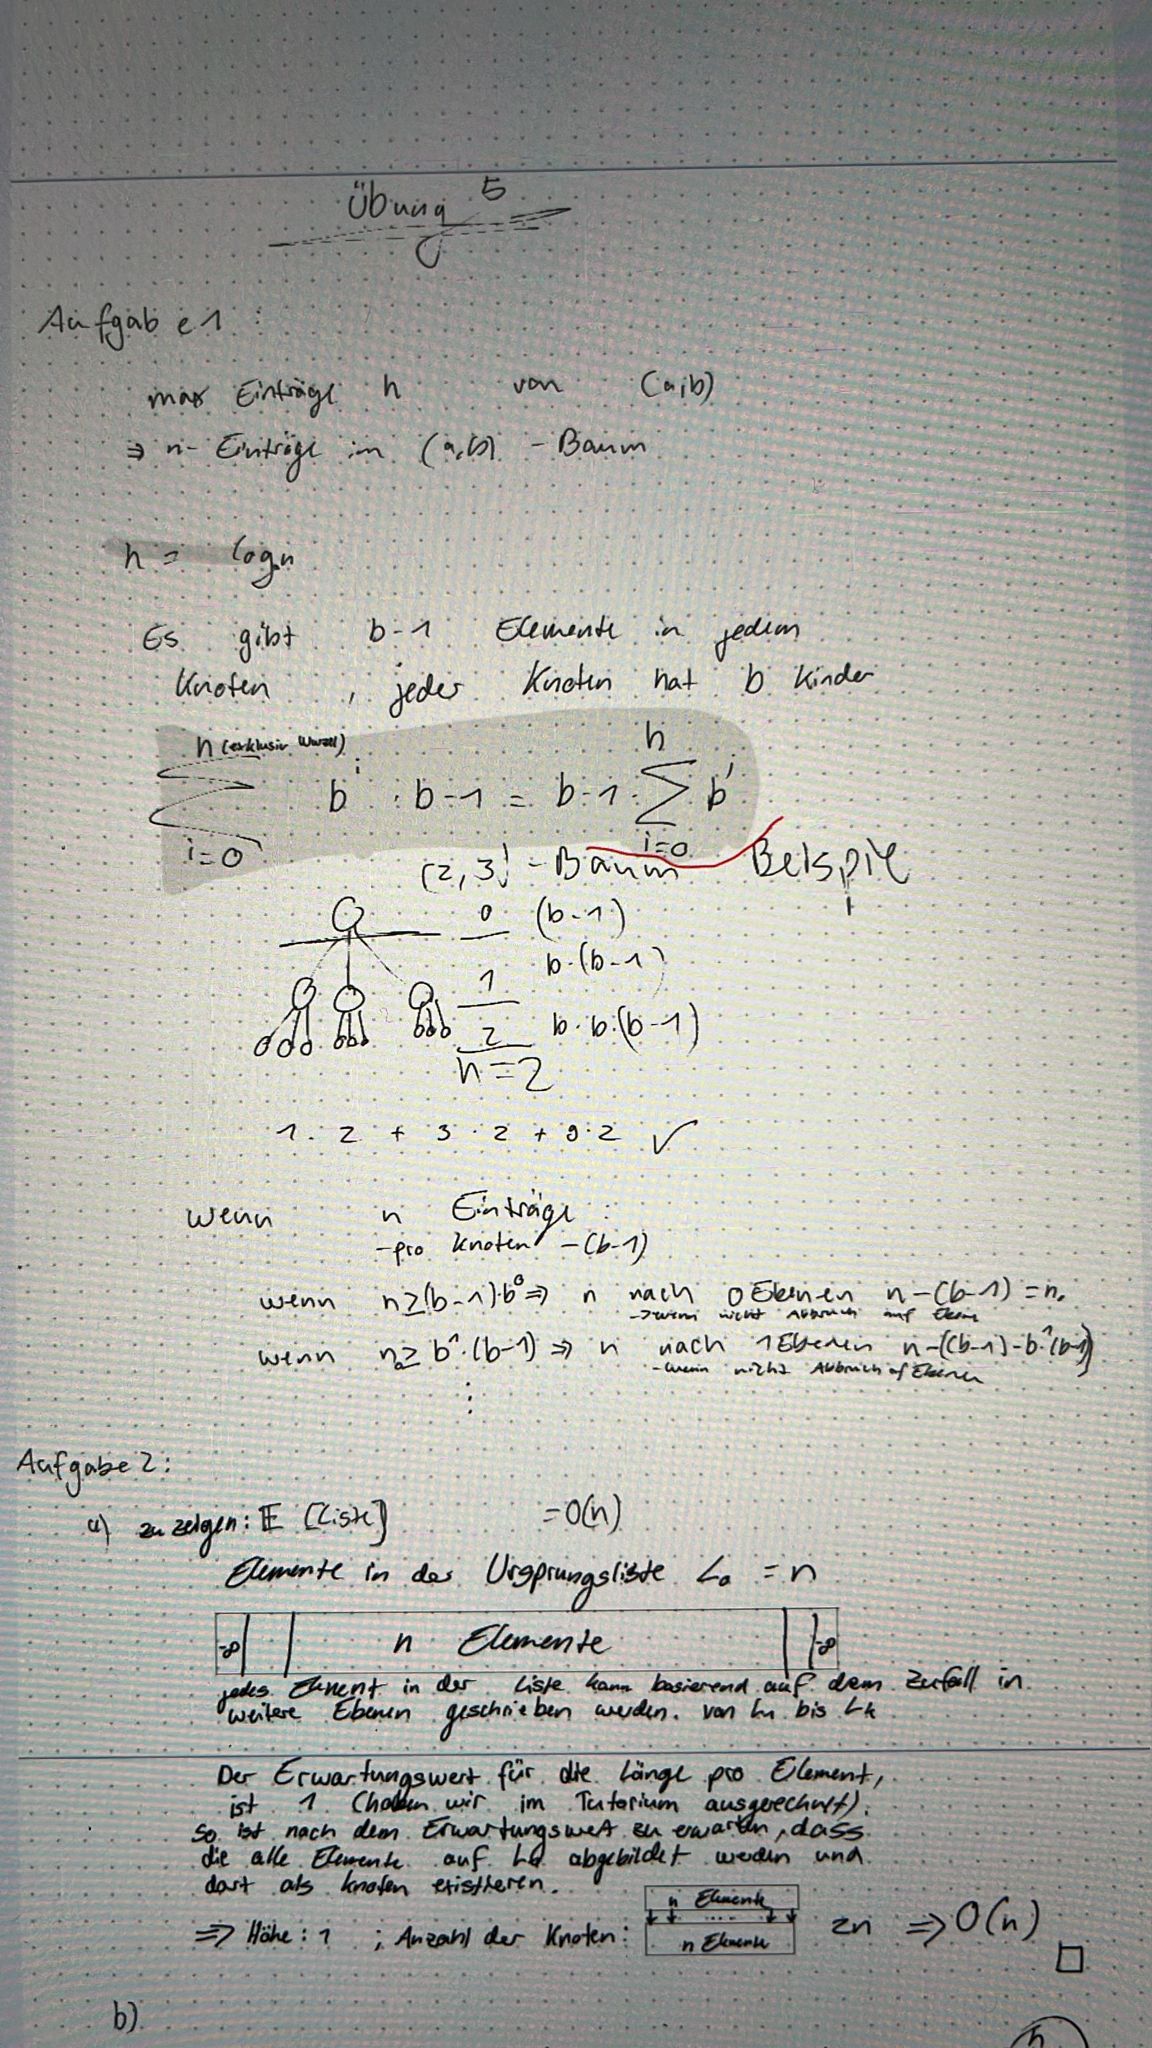 Übung 5
Aufgabe 1 :
max Einträge h von (a,b)
⇒ n- Einträge im (a,b) - Baum
h = log n
Es gibt b-1 Elemente in jedem
Knoten , jeder Knoten hat b Kinder
h (exklusiv Wurzel)
∑ b^i · b-1 = b-1 · ∑ b^i
i=0 h i=0
(2,3) - Baum Beispiel
0 (b-1)
1 b·(b-1)
2 b·b·(b-1)
h=2
1·2 + 3·2 + 9·2 ✓
wenn n Einträge :
-pro Knoten -(b-1)
wenn n≥(b-1)·b⁰ ⇒ n nach 0 Ebenen n-(b-1) = n₀
→ wenn nicht Abbruch auf Ebene
wenn n₀≥ b¹·(b-1) ⇒ n nach 1 Ebenen n-((b-1)-b¹(b-1))
-wenn nicht Abbruch auf Ebenen
⋮
Aufgabe 2:
a) zu zeigen: 𝔼 [Liste] = O(n)
Elemente in der Ursprungsliste L₀ = n
-∞ n Elemente -∞
jedes Element in der Liste kann basierend auf dem Zufall in
weitere Ebenen geschrieben werden. von L₁ bis Lₖ
Der Erwartungswert für die Länge pro Element,
ist 1 (haben wir im Tutorium ausgerechnet).
So ist nach dem Erwartungswert zu erwarten, dass
die alle Elemente auf abgebildet werden und
dort als Knoten existieren.
⇒ Höhe: 1 ; Anzahl der Knoten: n Elemente .... n Elemente 2n ⇒ O(n)
□
b)
h